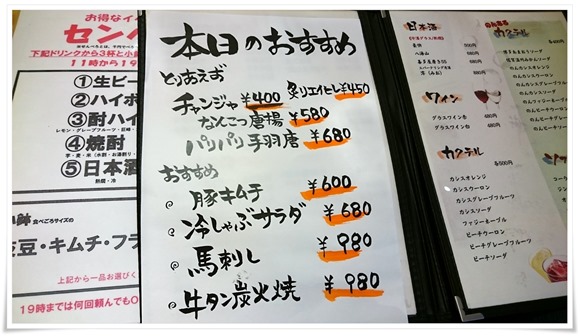 お得なイ
セン
下記ドリンクから3杯と小
11時から19
①生ビー
②ハイボ
③酎ハイ
レモン・グレープフルーツ・巨峰・
④焼酎
芋・麦・米(水割・お湯割り・
⑤日本酒
熱燗・冷
小鉢 食べごろサイズの
枝豆・キムチ・フラ
上記から一品お選びく
19時までは何回頼んでもO
本日のおすすめ
とりあえず
チャンジャ ¥400
炙りエイヒレ ¥450
なんこつ唐揚 ¥580
パリパリ手羽唐 ¥680
おすすめ
豚キムチ ¥600
冷しゃぶサラダ ¥680
馬刺し ¥980
牛タン炭火焼 ¥980
日本酒
八海山
ワイン
グラスワイン赤 480円
グラスワイン白 480円
カクテル
各500円
カシスオレンジ
カシスウーロン
カシスグレープフルーツ
カシスソーダ
ファジーネーブル
ピーチウーロン
ピーチグレープフルーツ
ピーチソーダ
カクテル